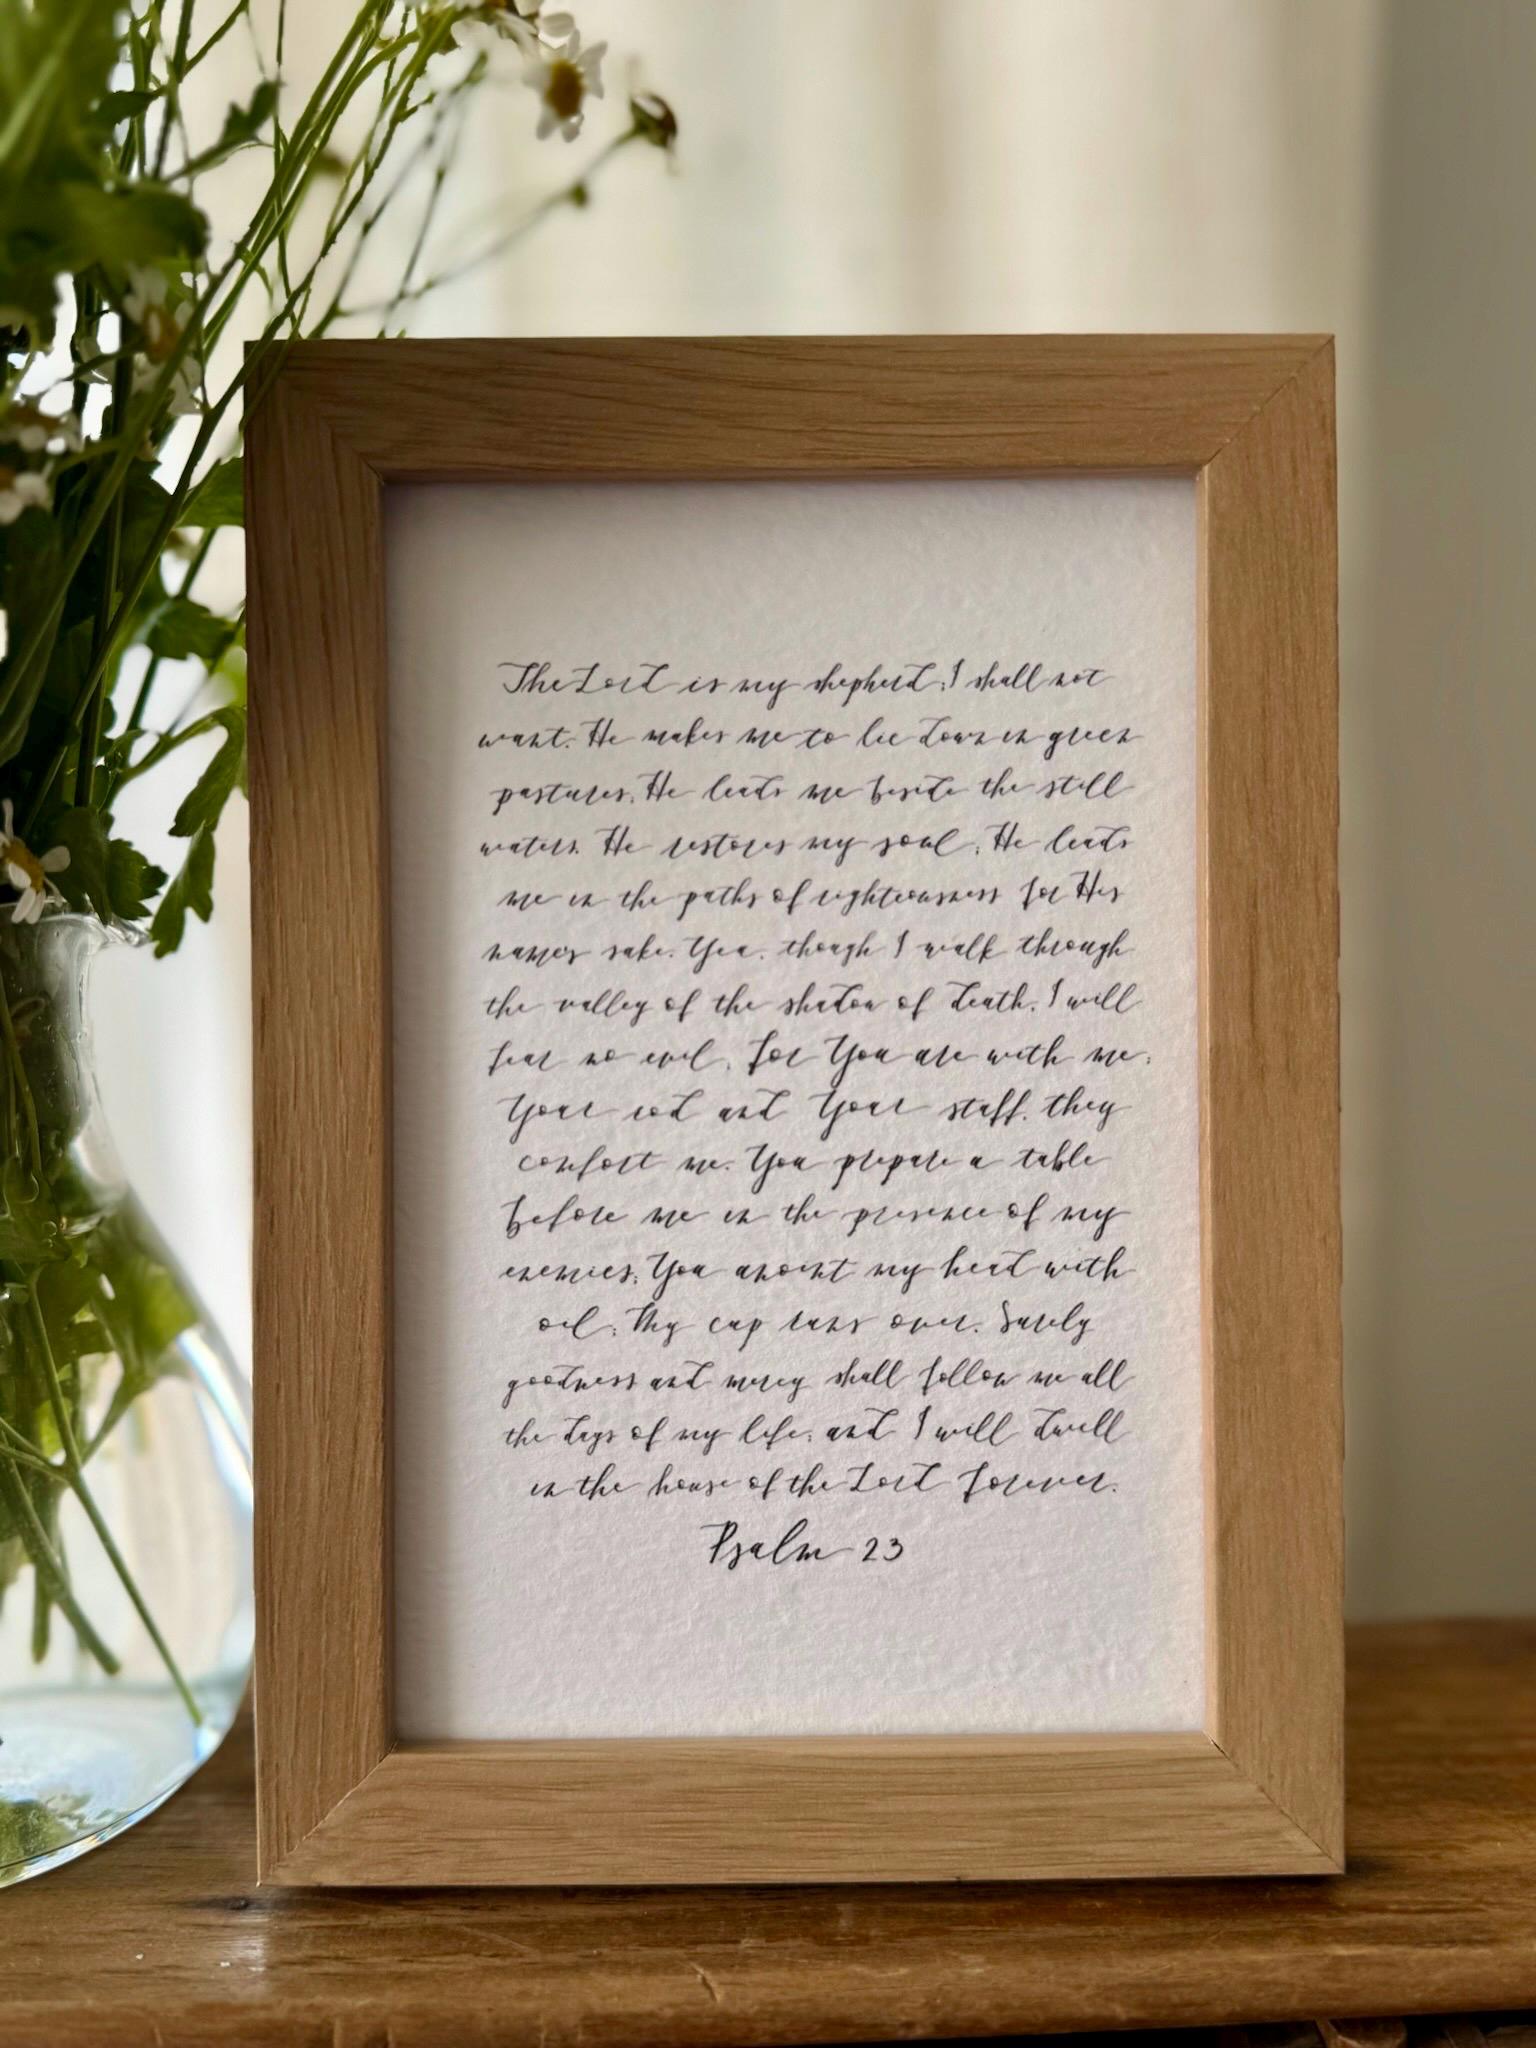 The Lord is my shepherd; I shall not
want. He makes me to lie down in green
pastures; He leads me beside the still
waters. He restores my soul; He leads
me in the paths of righteousness for His
name's sake. Yea, though I walk through
the valley of the shadow of death, I will
fear no evil; for You are with me;
Your rod and Your staff, they
comfort me. You prepare a table
before me in the presence of my
enemies; You anoint my head with
oil; My cup runs over. Surely
goodness and mercy shall follow me all
the days of my life; and I will dwell
in the house of the Lord forever.
Psalm 23